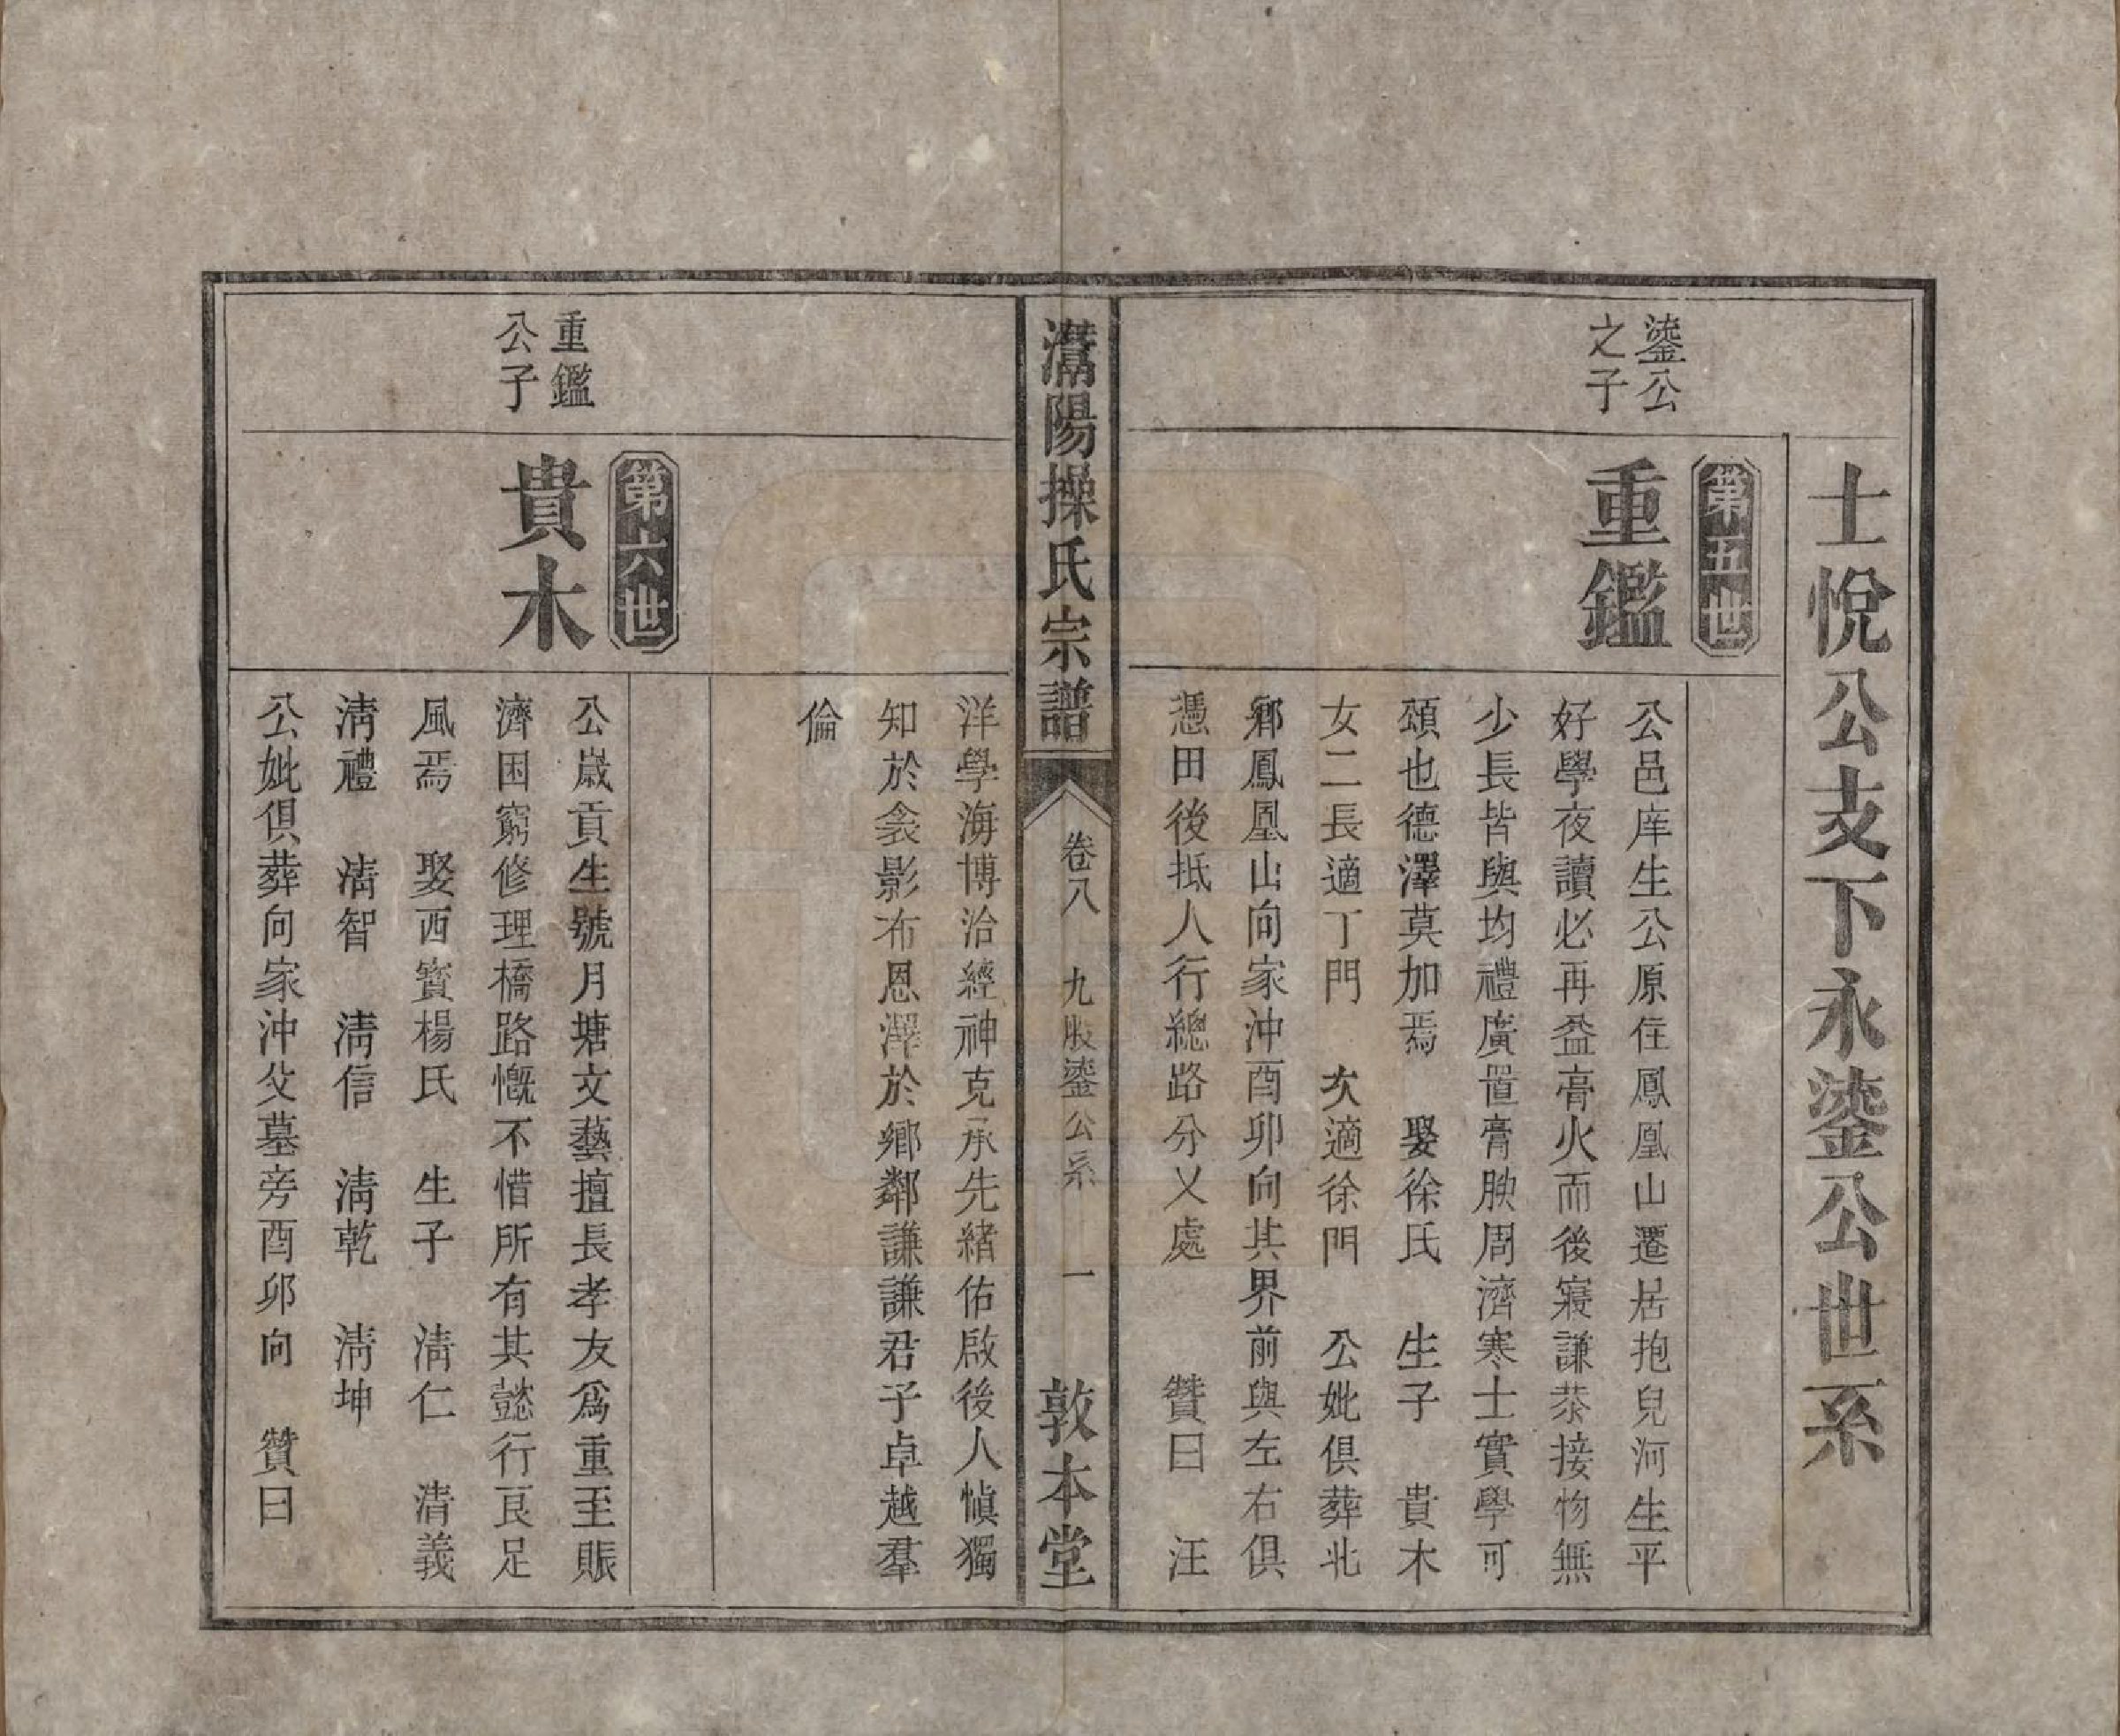 士悅公支下永鍌公世系
鍌公
之子
第五世
重鑑
公邑庠生公原住鳳凰山遷居抱兒河生平
好學夜讀必再益膏火而後寢謙恭接物無
少長皆與均禮廣置膏腴周濟寒士實學可
頌也德澤莫加焉 娶徐氏 生子 貴木
女二長適丁門 次適徐門 公妣俱葬北
鄉鳳凰山向家沖酉卯向其界前與左右俱
憑田後抵人行總路分乂處 贊曰 汪
灊陽操氏宗譜
卷八 九股鍌公系 一
敦本堂
洋學海博洽經神克承先緒佑啟後人慎獨
知於衾影布恩澤於鄉鄰謙謙君子卓越羣
倫
重鑑
公子
第六世
貴木
公歲貢生號月塘文藝擅長孝友為重至賑
濟困窮修理橋路慨不惜所有其懿行良足
風焉 娶西寳楊氏 生子 淸仁 淸義
淸禮 淸智 淸信 淸乾 淸坤
公妣俱葬向家沖父墓旁酉卯向 贊曰